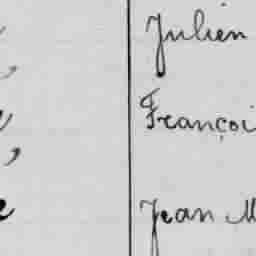 Julien
Françoi
Jean M